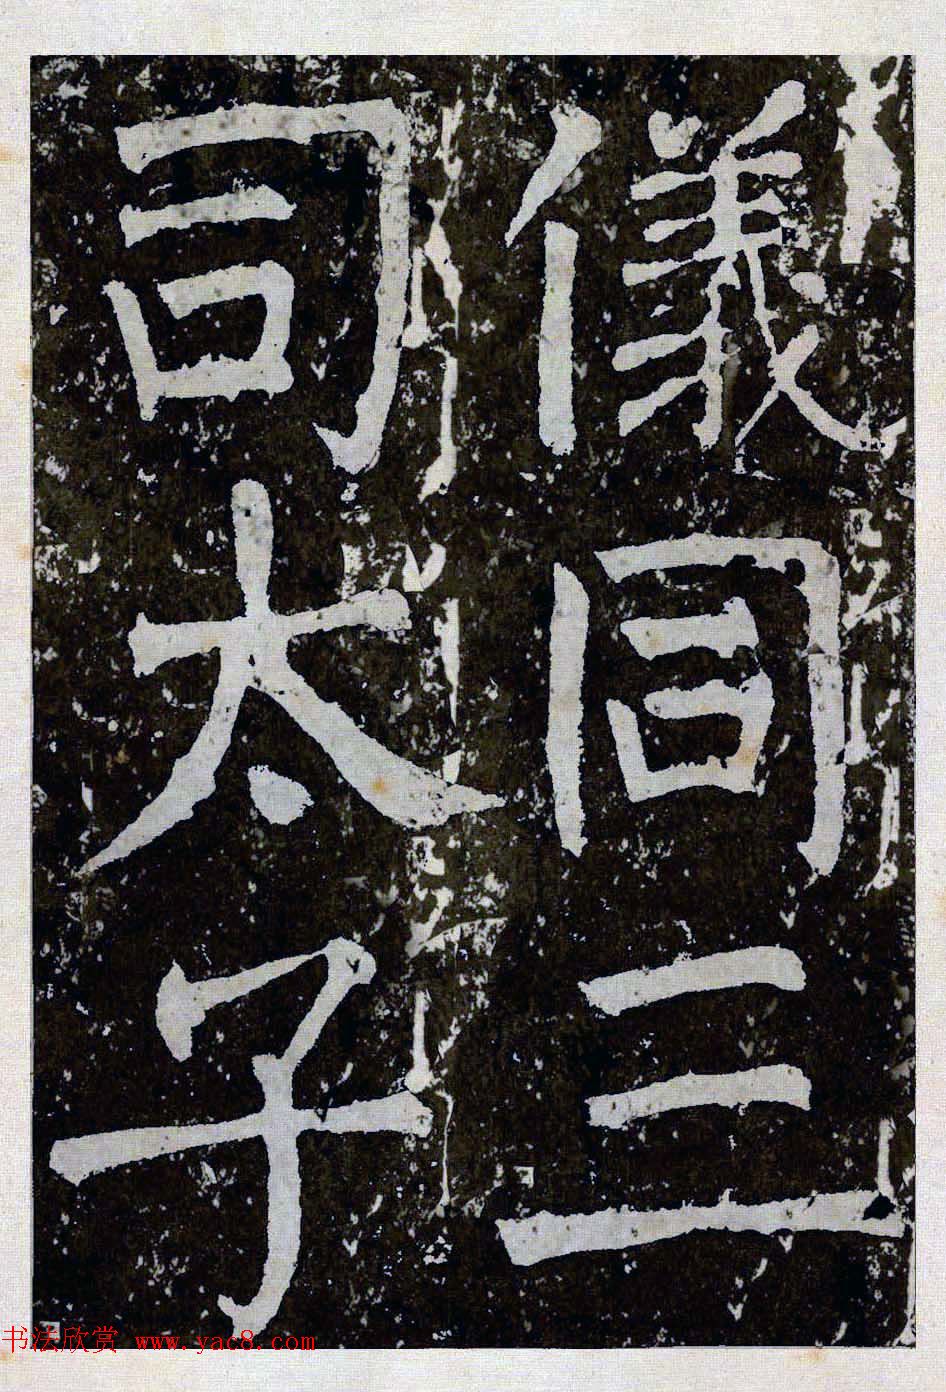 儀同三
司太子
书法欣赏 www.yac8.com